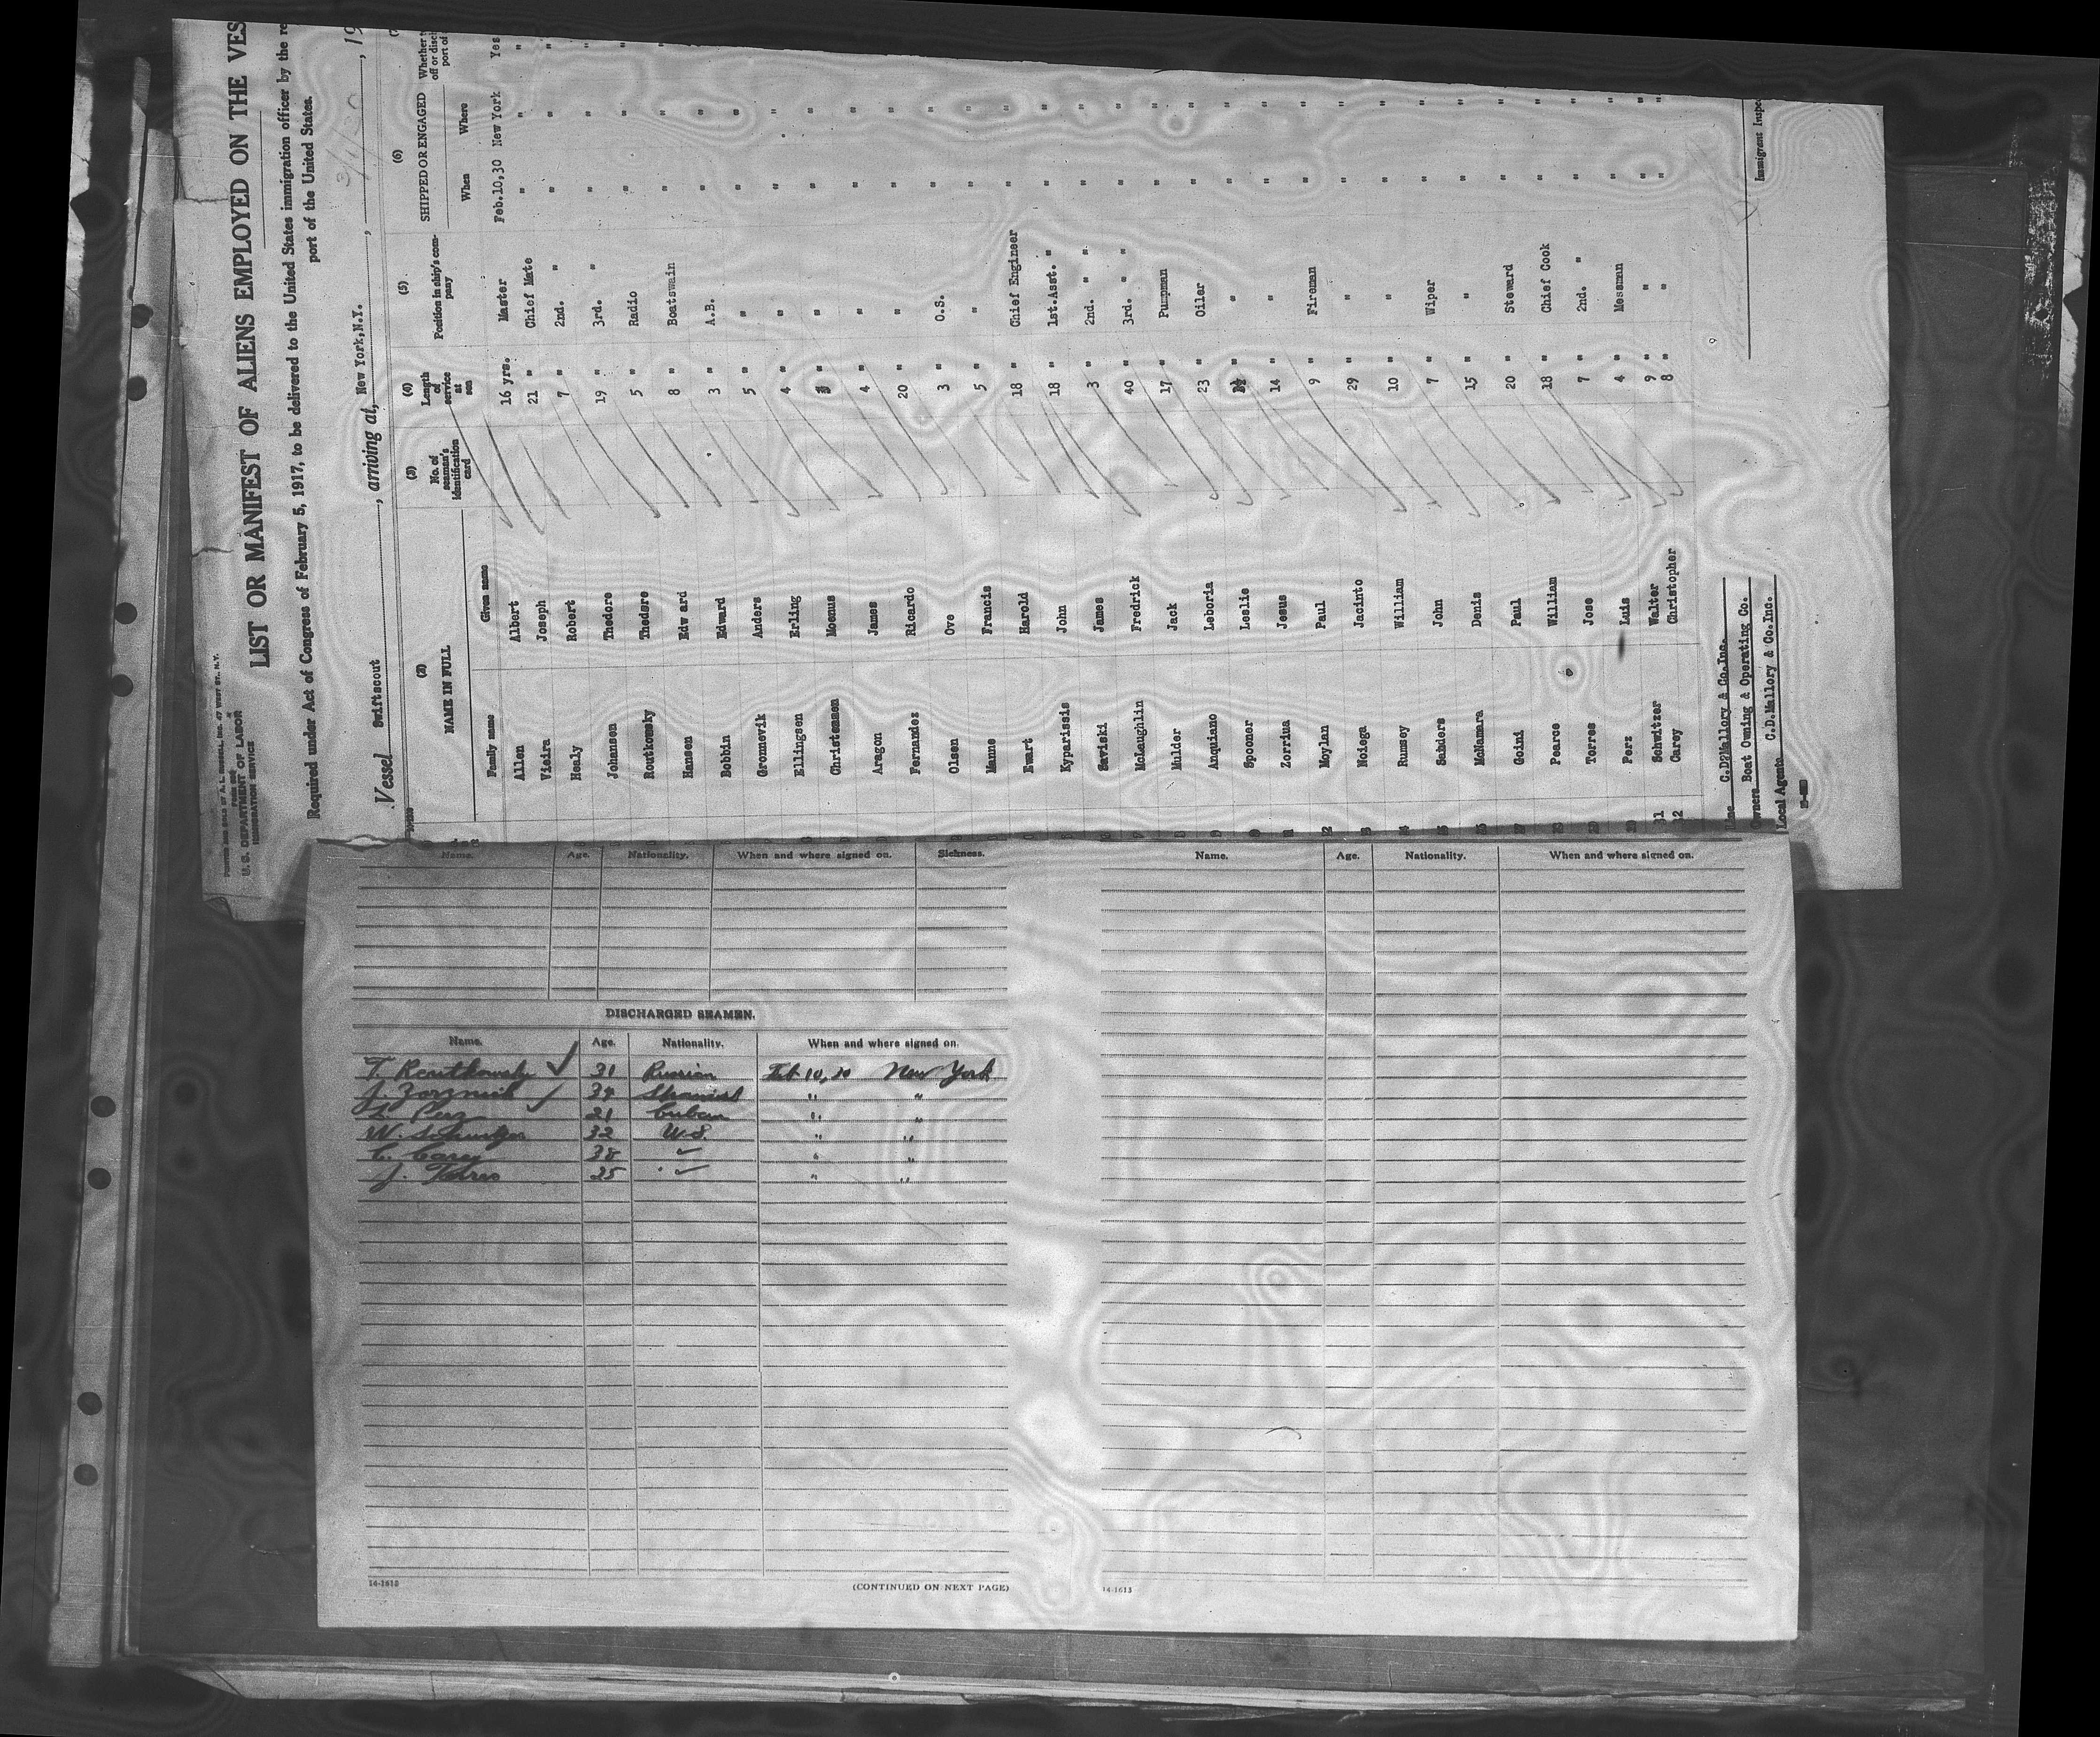 PRINTED AND SOLD BY
U. S. DEPARTMENT OF LABOR
IMMIGRATION SERVICE
LIST OR MANIFEST OF ALIENS EMPLOYED ON THE VES
Required under Act of Congress of February 5, 1917, to be delivered to the United States immigration officer by the re
port of the United States.
Vessel Swiftscout, arriving at, New York, N.Y., 19
(2) (3) (4) (5) (6)
NAME IN FULL No. of seaman's identification card Length of service at sea Position in ship's company SHIPPED OR ENGAGED
Family name Given name When Where
Allen Albert 16 yrs. Master Feb.10,30 New York Yes
Vieira Joseph 21 " Chief Mate " " "
Healy Robert 7 " 2nd. " " " "
Johansen Thedore 19 " 3rd. " " " "
Routkowsky Thedore 5 " Radio " " "
Hansen Edw ard 8 " Boatswain " " "
Bobbin Edward 3 " A.B. " "
Gronnevik Anders 5 " " " "
Ellingsen Erling 4 " " " "
Christensen Moenus " " " "
Aragon James 4 " " " "
Fernandez Ricardo 20 " " " "
Olsen Ove 3 " O.S. " "
Manne Francis 5 " " " "
Ewart Harold 18 " Chief Engineer " "
Kyparissis John 18 " 1st.Asst. " " "
Saviski James 3 " 2nd. " " " "
McLaughlin Fredrick 40 " 3rd. " " " "
Mulder Jack 17 " Pumpman " "
Anquiano Leboria 23 " Oiler " "
Spooner Leslie " " " "
Zorriua Jesus 14 " " " "
Moylan Paul 9 " Fireman " "
Noiega Jacinto 29 " " " "
Rumsey William 10 " " " "
Sanders John 7 " Wiper " "
McNamara Denis 15 " " " "
Goini Paul 20 " Steward " "
Pearce William 18 " Chief Cook " "
Torres Jose 7 " 2nd. " " "
Perz Luis 4 " Messman " "
31 Schwitzer Walter 9 " " " "
32 Carey Christopher 8 " " " "
Line C.D.Mallory & Co.Inc.
Owners Boat Owning & Operating Co.
Local Agents C.D.Mallory & Co.Inc.
Immigrant Inspec
Name. Age. Nationality. When and where signed on. Sickness.
DISCHARGED SEAMEN.
Name. Age. Nationality. When and where signed on.
T. Routkowsky 31 Russian Feb 10, 30 New York
J. 34 Spanish " "
L. Perz 21 Cuban " "
W. Schwitzer 32 U.S. " "
C. Carey 38 " "
J. Torres 25 " "
14-1613
(CONTINUED ON NEXT PAGE)
Name. Age. Nationality. When and where signed on.
14-1613